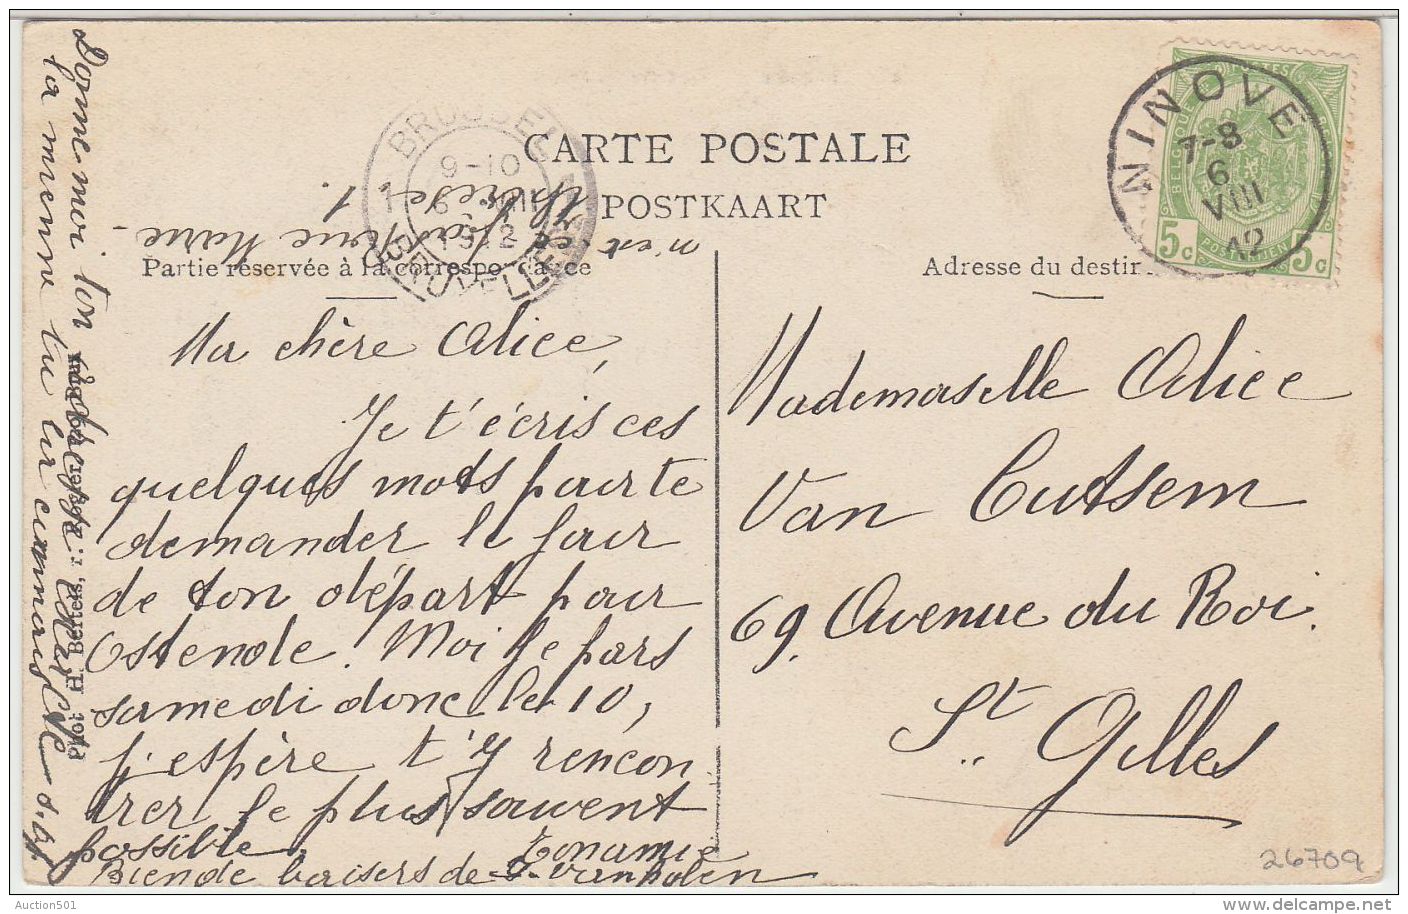 CARTE POSTALE
POSTKAART
Partie réservée à la correspondance
Adresse du destin
BRUSSEL
9-10
6 VIII
1912
BRUXELLES
NINOVE
7-8
6
VIII
12
POSTES
BELGIQUE
5c
POSTERIJEN
5c
Ma chère Alice,
Je t'écris ces
quelques mots pour te
demander le jour
de ton départ pour
Ostende. Moi je pars
samedi donc le 10,
j'espère t'y rencon
trer le plus souvent
possible.
Ton amie
Bien de baisers de J. Vanpolen
Donne moi ton adresse
la mienne tu la connais
n'est ce pas rue Marie
Thérèse 1.
Phot. H. Bertels, r.
Mademoiselle Alice
Van Cutsem
69, Avenue du Roi.
St Gilles
26709
© Auction501
delcampe.net